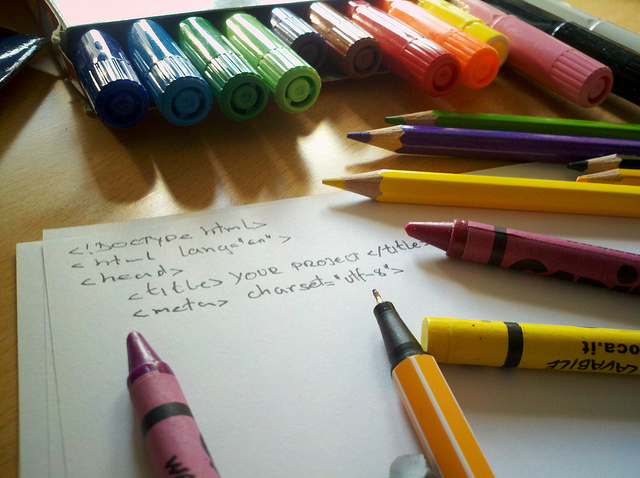 <!DOCTYPE html>
<html lang="en">
<head>
<title> YOUR PROJECT </title>
<meta> charset="utf-8">
oca.it
LAVABILE